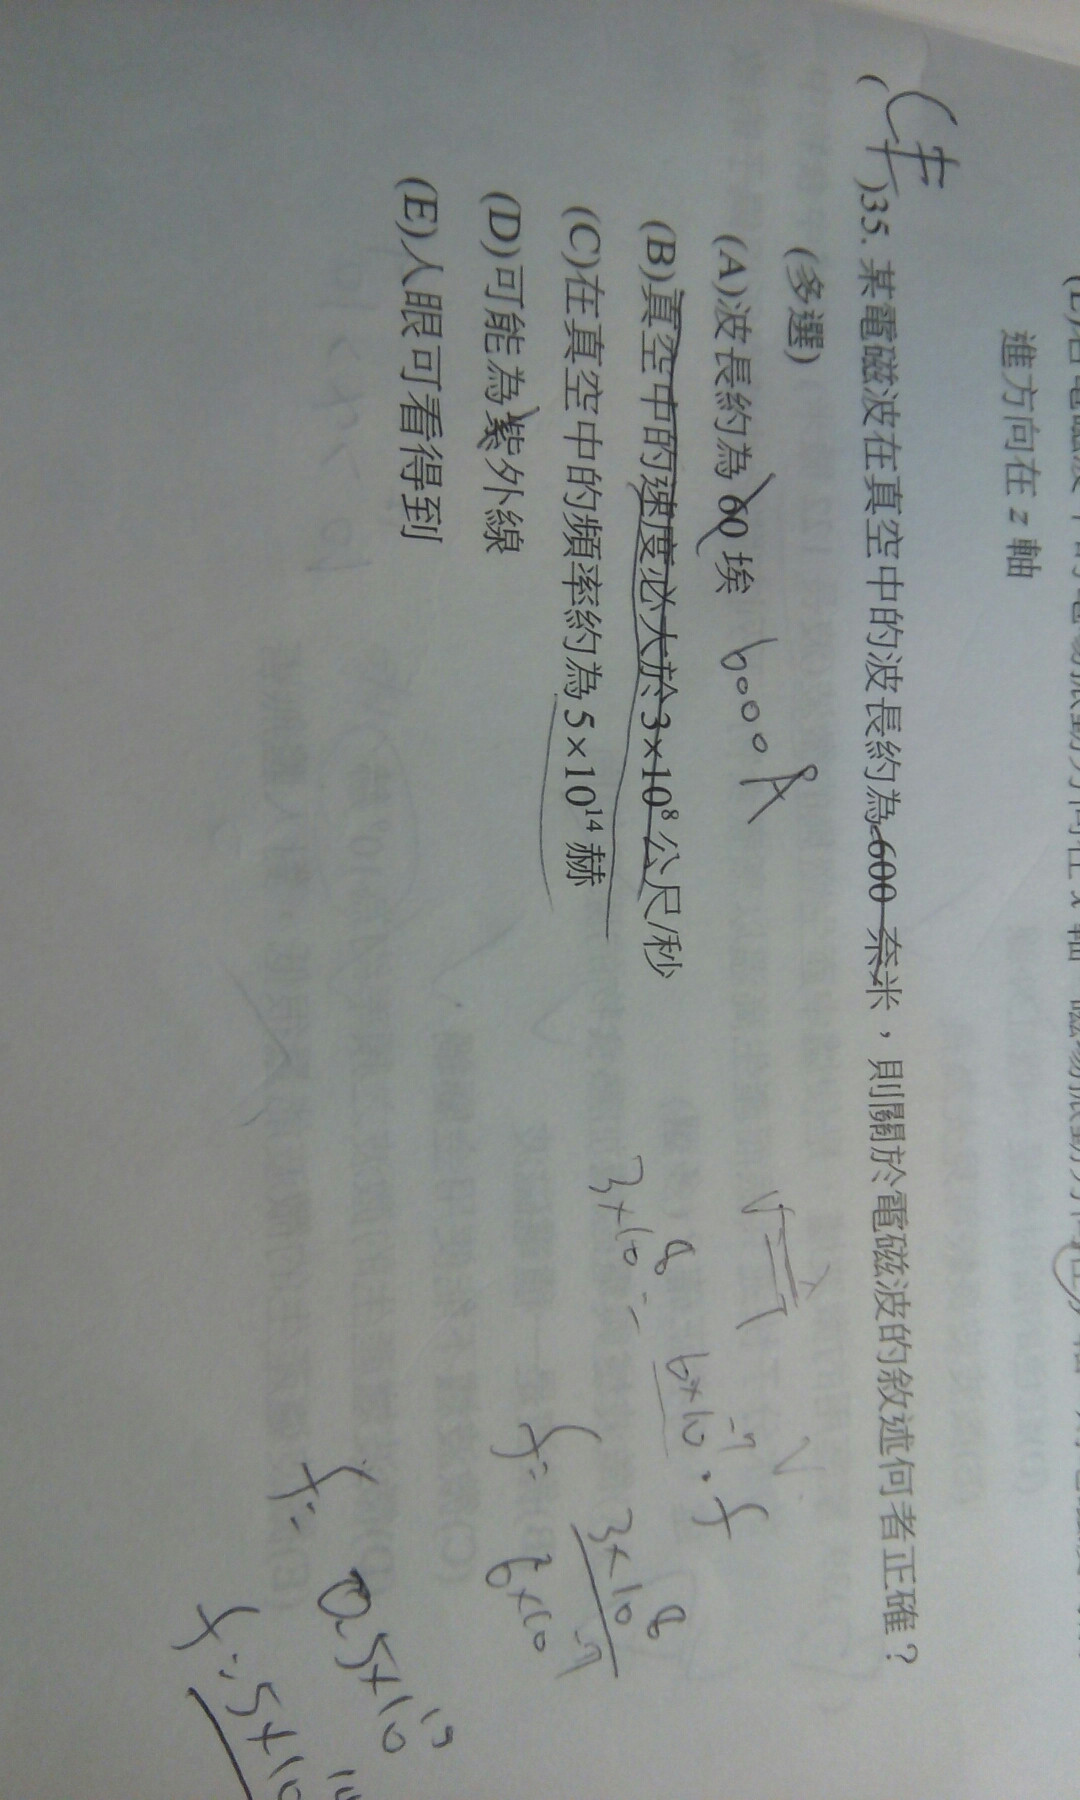 進方向在 z 軸
(CE)35. 某電磁波在真空中的波長約為 600 奈米，則關於電磁波的敘述何者正確？
(多選)
(A)波長約為 60 埃 6000 Å
(B)真空中的速度必大於 3×10⁸ 公尺/秒
(C)在真空中的頻率約為 5×10¹⁴ 赫
(D)可能為紫外線
(E)人眼可看得到
3×10⁸ = 6×10⁻⁷ · f
f = 3×10⁸ / 6×10⁻⁷
f = 0.5×10¹⁵
f = 5×10¹⁴